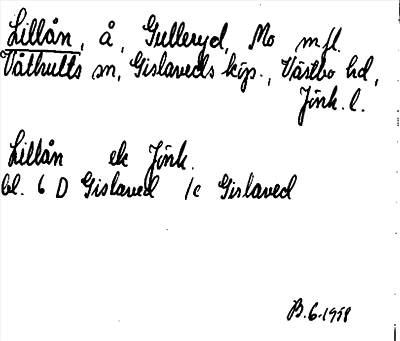 Lillån, å, Gulleryd, Mo m.fl.
Våthults sn, Gislaveds köp., Västbo hd,
Jönk. l.
Lillån ek Jönk.
bl. 6 D Gislaved 1c Gislaved
B. 6. 1958